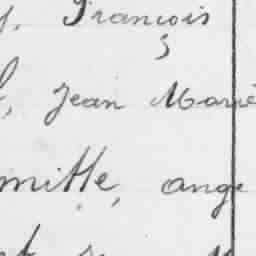 François
Jean Marie
mitte, ange